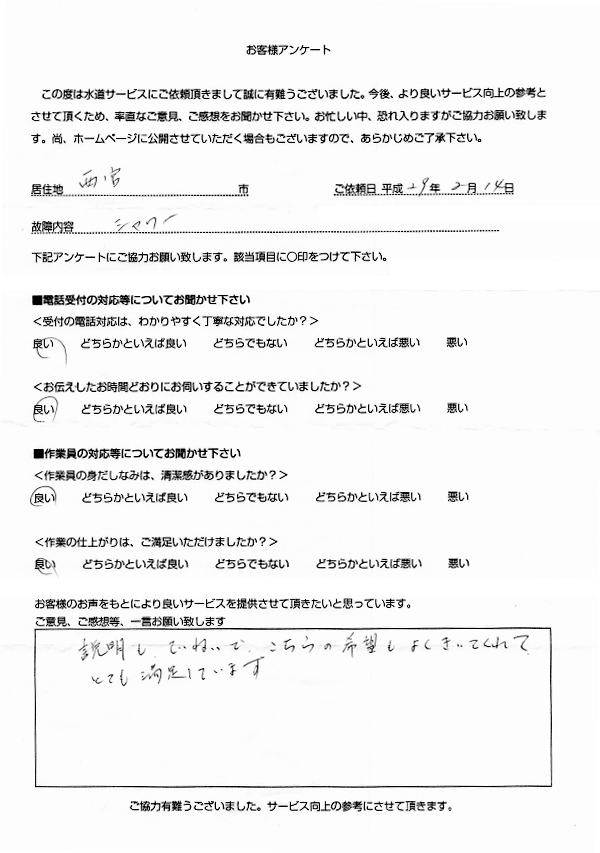 お客様アンケート
この度は水道サービスにご依頼頂きまして誠に有難うございました。今後、より良いサービス向上の参考と
させて頂くため、率直なご意見、ご感想をお聞かせ下さい。お忙しい中、恐れ入りますがご協力お願い致しま
す。尚、ホームページに公開させていただく場合もございますので、あらかじめご了承下さい。
居住地 西宮 市 ご依頼日 平成 29年 2月 14日
故障内容 シャワー
下記アンケートにご協力お願い致します。該当項目に〇印をつけて下さい。
■電話受付の対応等についてお聞かせ下さい
＜受付の電話対応は、わかりやすく丁寧な対応でしたか？＞
良い どちらかといえば良い どちらでもない どちらかといえば悪い 悪い
＜お伝えしたお時間どおりにお伺いすることができていましたか？＞
良い どちらかといえば良い どちらでもない どちらかといえば悪い 悪い
■作業員の対応等についてお聞かせ下さい
＜作業員の身だしなみは、清潔感がありましたか？＞
良い どちらかといえば良い どちらでもない どちらかといえば悪い 悪い
＜作業の仕上がりは、ご満足いただけましたか？＞
良い どちらかといえば良い どちらでもない どちらかといえば悪い 悪い
お客様のお声をもとにより良いサービスを提供させて頂きたいと思っています。
ご意見、ご感想等、一言お願い致します
説明も、ていねいで、こちらの希望もよくきいてくれて
とても満足しています
ご協力有難うございました。サービス向上の参考にさせて頂きます。